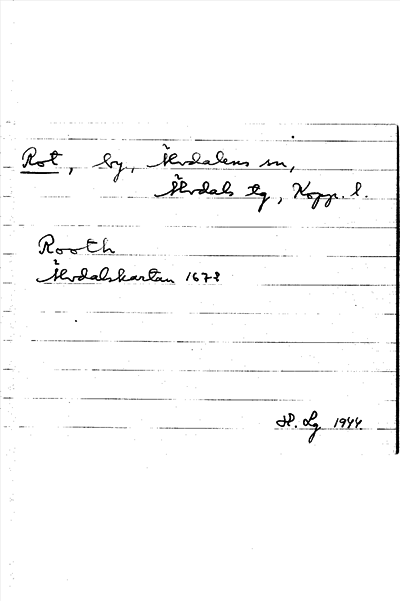 Rot, by, Älvdalens sn,
Älvdals tg, Kopp. l.
Rooth
Älvdalskartan 1672
H. Lg 1944